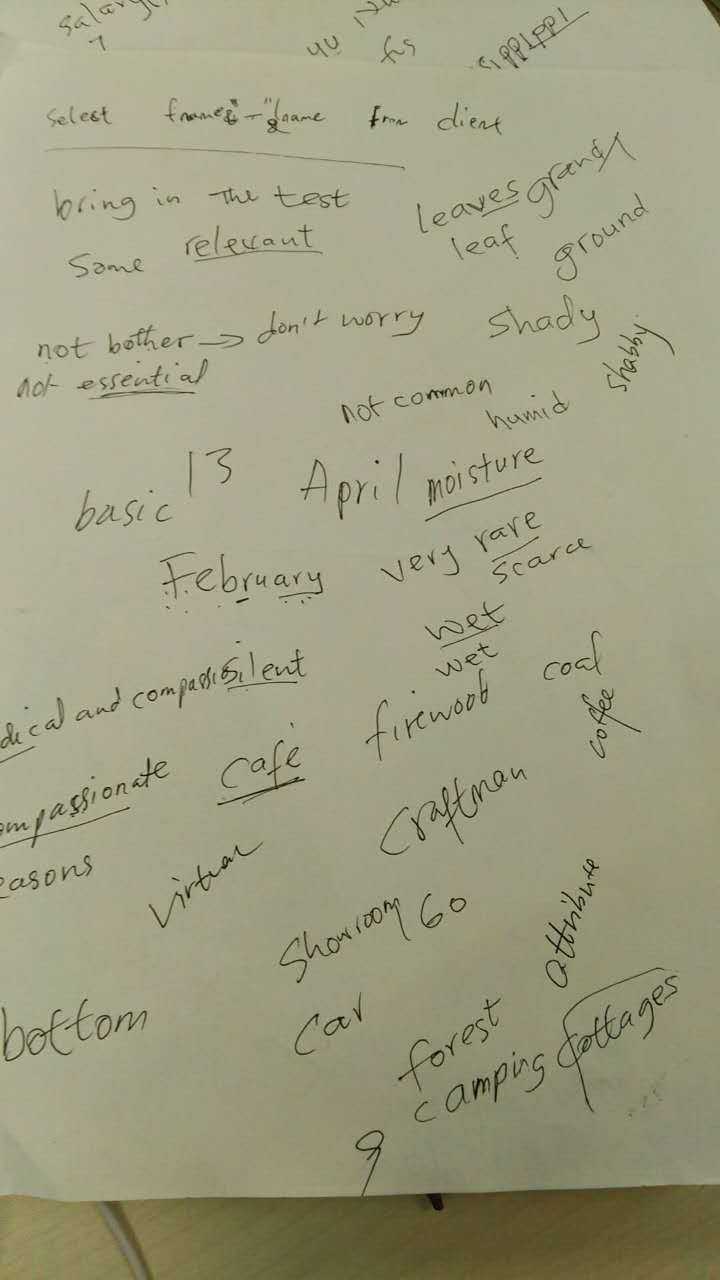 salary
fus
select fname&"-"&lname from client
bring in the test
leaves grand
some relevant
leaf ground
not bother → don't worry shady
not essential
shabby
not common humid
basic 13 April moisture
February very rare
scarce
wet
dical and compassio silent wet
firewood coal
ompassionate café coffee
easons virtual craftman
showroom 60 attribute
bottom car forest
camping cottages